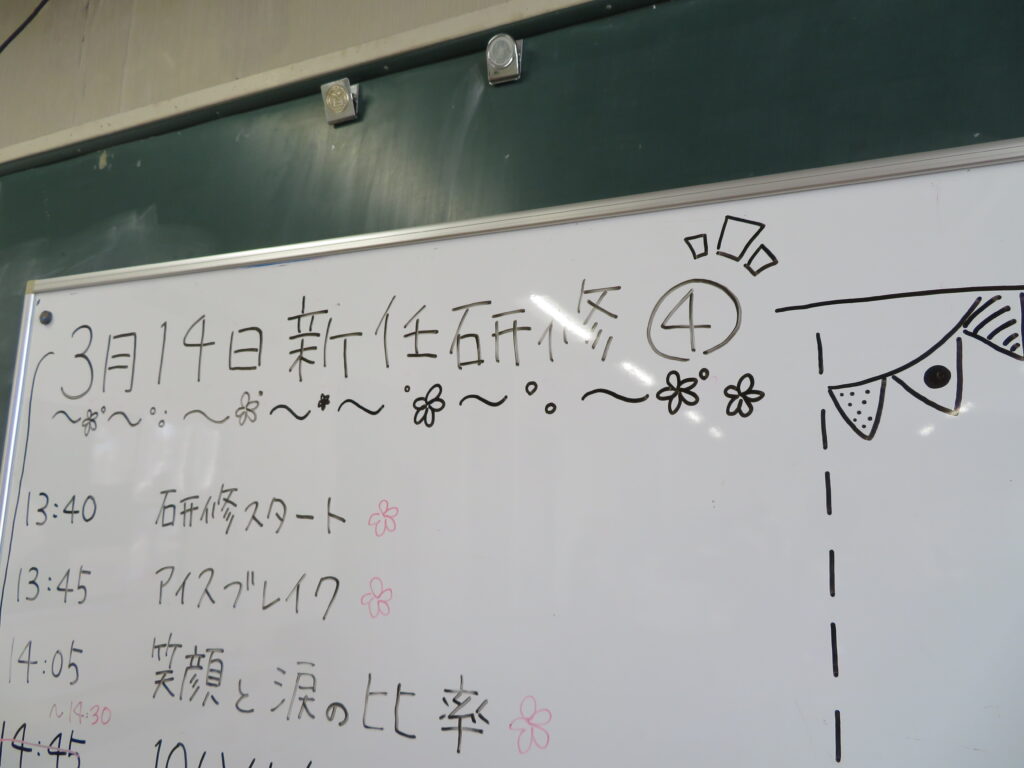 3月14日新任研修④
13:40 研修スタート
13:45 アイスブレイク
14:05 笑顔と涙の比率
～14:30
14:45